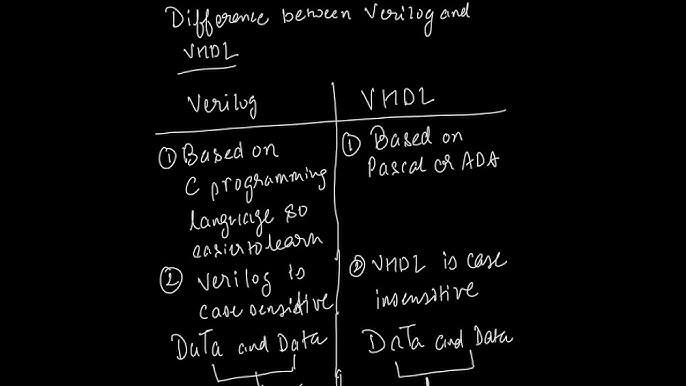 Difference between Verilog and
VHDL
Verilog
VHDL
① Based on
C programming
language so
easier to learn
② Verilog is
case sensitive
DaTa and Data
① Based on
Pascal or ADA
② VHDL is case
insensitive
DaTa and Data